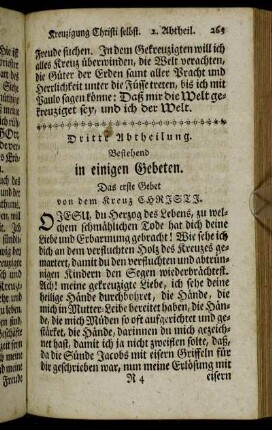 Kreuzigung Christi selbst. 2. Abtheil. 265
Freude suchen. In dem Gekreuzigten will ich
alles Kreuz überwinden, die Welt verachten,
die Güter der Erden samt aller Pracht und
Herrlichkeit unter die Füsse treten, bis ich mit
Paulo sagen könne: Daß mir die Welt ge-
kreuziget sey, und ich der Welt.
Dritte Abtheilung.
Bestehend
in einigen Gebeten.
Das erste Gebet
von dem Kreuz CHRISTI.
O JESU, du Herzog des Lebens, zu wel-
chem schmählichen Tode hat dich deine
Liebe und Erbarmung gebracht! Wie sehe ich
dich an dem verfluchten Holz des Kreuzes ge-
martert, damit du den verfluchten und abtrün-
nigen Kindern den Segen wiederbrächtest.
Ach! meine gekreuzigte Liebe, ich sehe deine
heilige Hände durchbohret, die Hände, die
mich in Mutter-Leibe bereitet haben, die Hän-
de, die mich Müden so oft aufgerichtet und ge-
stärket, die Hände, darinnen du mich gezeich-
net hast, damit ich ja nicht zweiflen solte, daß,
da die Sünde Jacobs mit eisern Griffeln für
dir geschrieben war, nun meine Erlösung mit
R 4 eisern
Freude